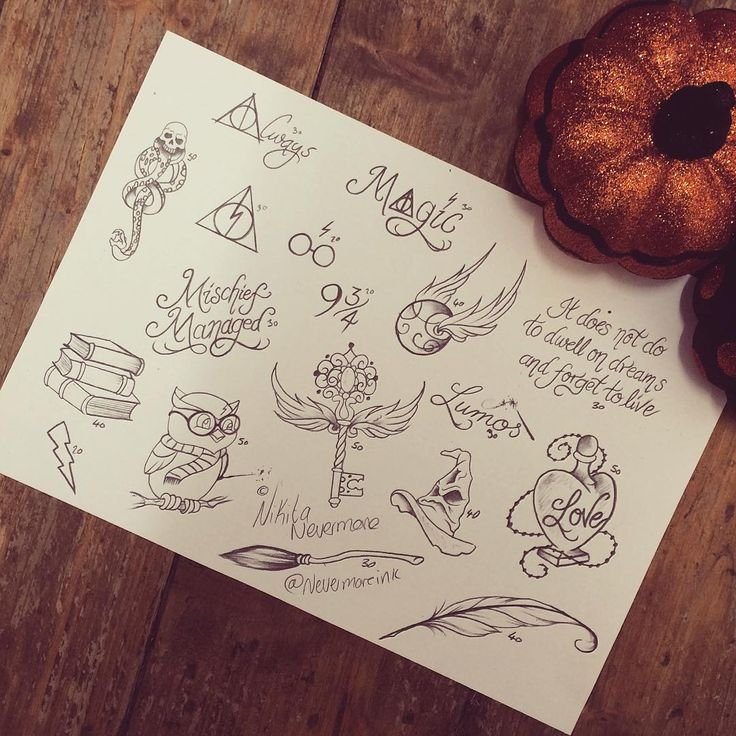 Always
30
50
Magic
30
30
20
Mischief
Managed 30
9 3/4 20
40
It does not do
to dwell on dreams
and forget to live
30
40
20
50
50
Lumos
30
40
50
Love
© Nikita
Nevermore
30
@Nevermoreink
40